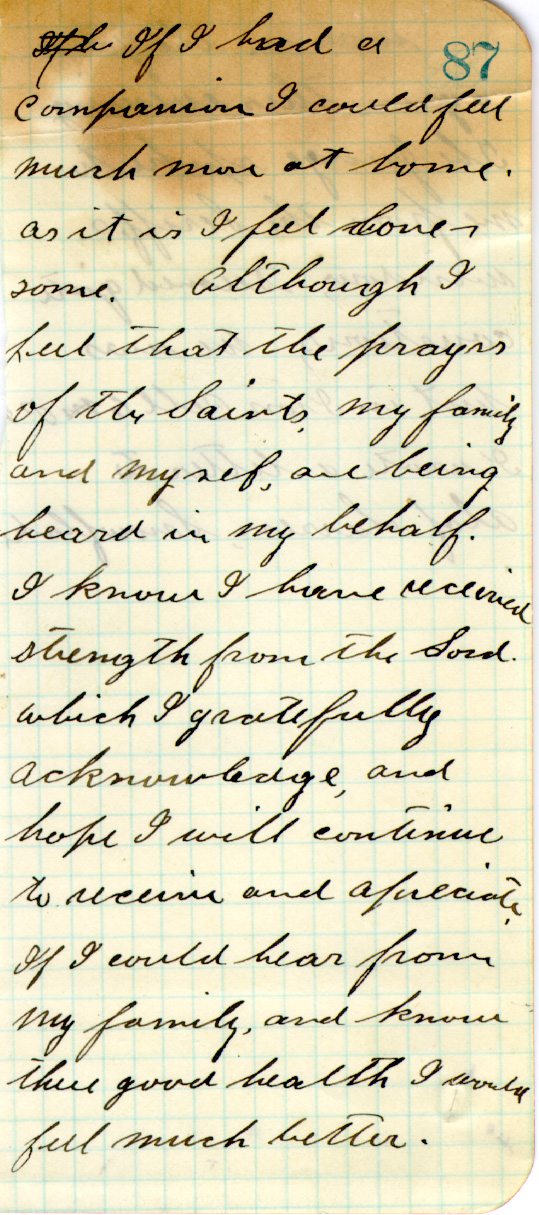 If I had a
87
companion I could feel
much more at home.
as it is I feel lone-
some. Although I
feel that the prayrs
of the Saints, my family
and my self, are being
heard in my behalf.
I know I have received
strength from the Lord.
which I gratefully
acknowledge, and
hope I will continue
to receive and apreciate.
If I could hear from
my family, and know
thee good health I would
feel much better.